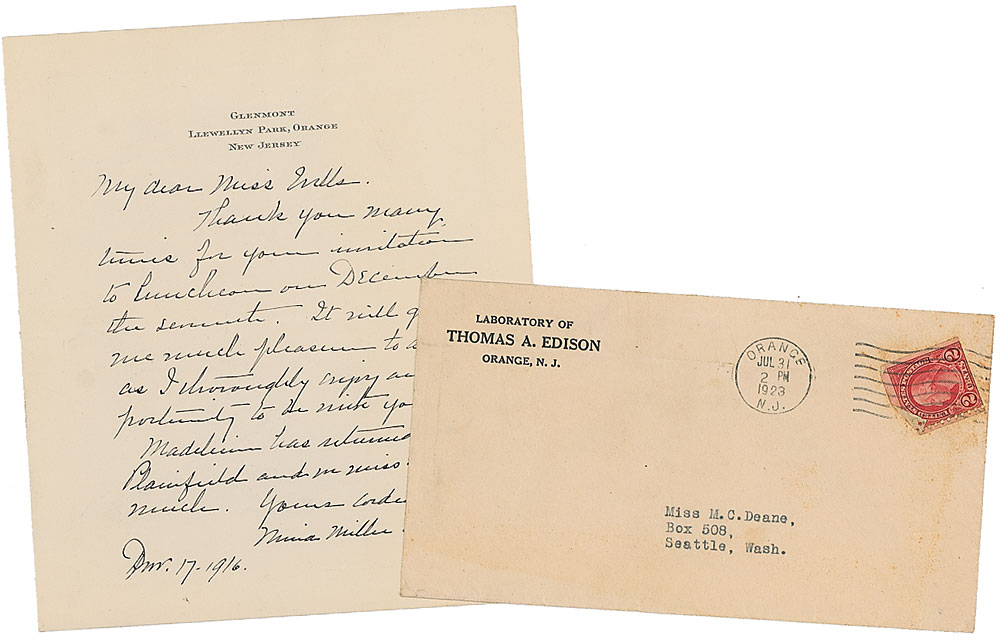 GLENMONT
LLEWELLYN PARK, ORANGE
NEW JERSEY
My dear Miss
Thank you many
times for your invitation
to luncheon on December
the seventh. It will g
me much pleasure to a
as I thoroughly enjoy an
portunity to be with yo
Madeleine has returned
Plainfield and we miss
much. Yours cordi
Mina Miller
Nov. 17-1916.
LABORATORY OF
THOMAS A. EDISON
ORANGE, N. J.
ORANGE
JUL 31
2 PM
1923
N.J.
Miss M.C.Deane,
Box 508,
Seattle, Wash.